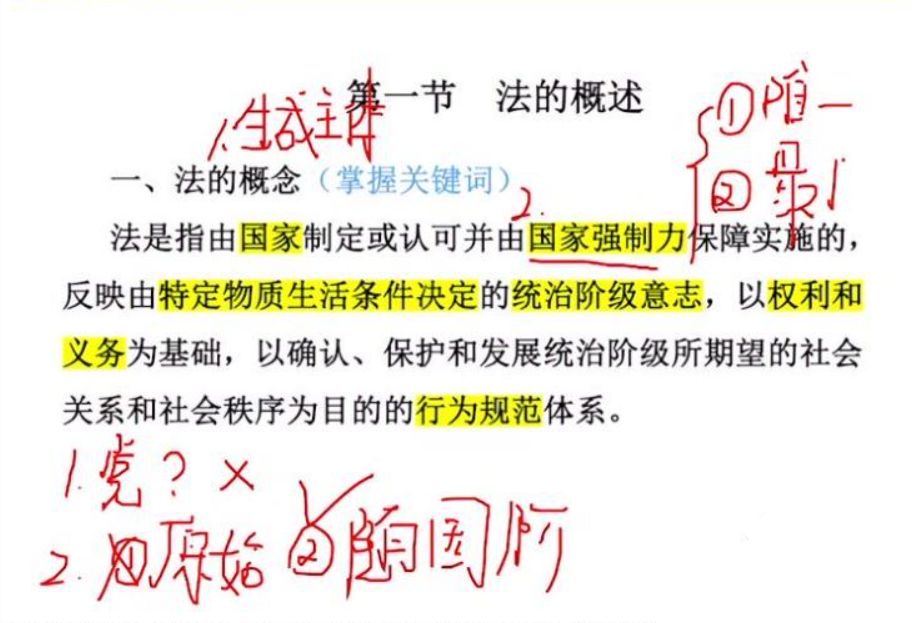 第一节 法的概述
1.生成主体
①唯一
②最
一、法的概念（掌握关键词）
2.
法是指由国家制定或认可并由国家强制力保障实施的，
反映由特定物质生活条件决定的统治阶级意志，以权利和
义务为基础，以确认、保护和发展统治阶级所期望的社会
关系和社会秩序为目的的行为规范体系。
1.党？×
2.①原始 ②随国阶